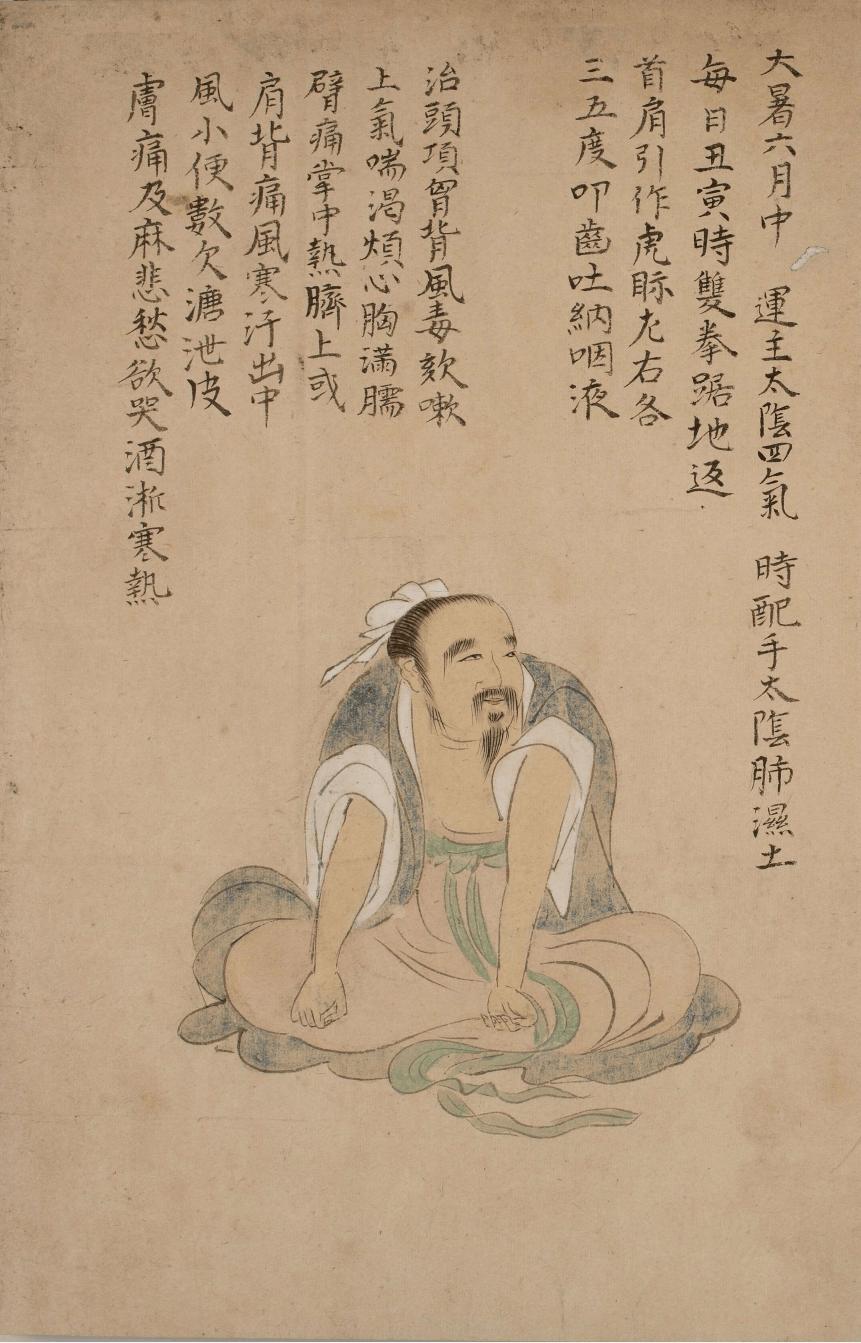 大暑六月中　運主太陰四氣　時配手太陰肺濕土
每日丑寅時雙拳踞地返
首肩引作虎眎左右各
三五度叩齒吐納咽液
治頭項胷背風毒欬嗽
上氣喘渴煩心胸滿臑
臂痛掌中熱臍上或
肩背痛風寒汗出中
風小便數欠溏泄皮
膚痛及麻悲愁欲哭洒淅寒熱